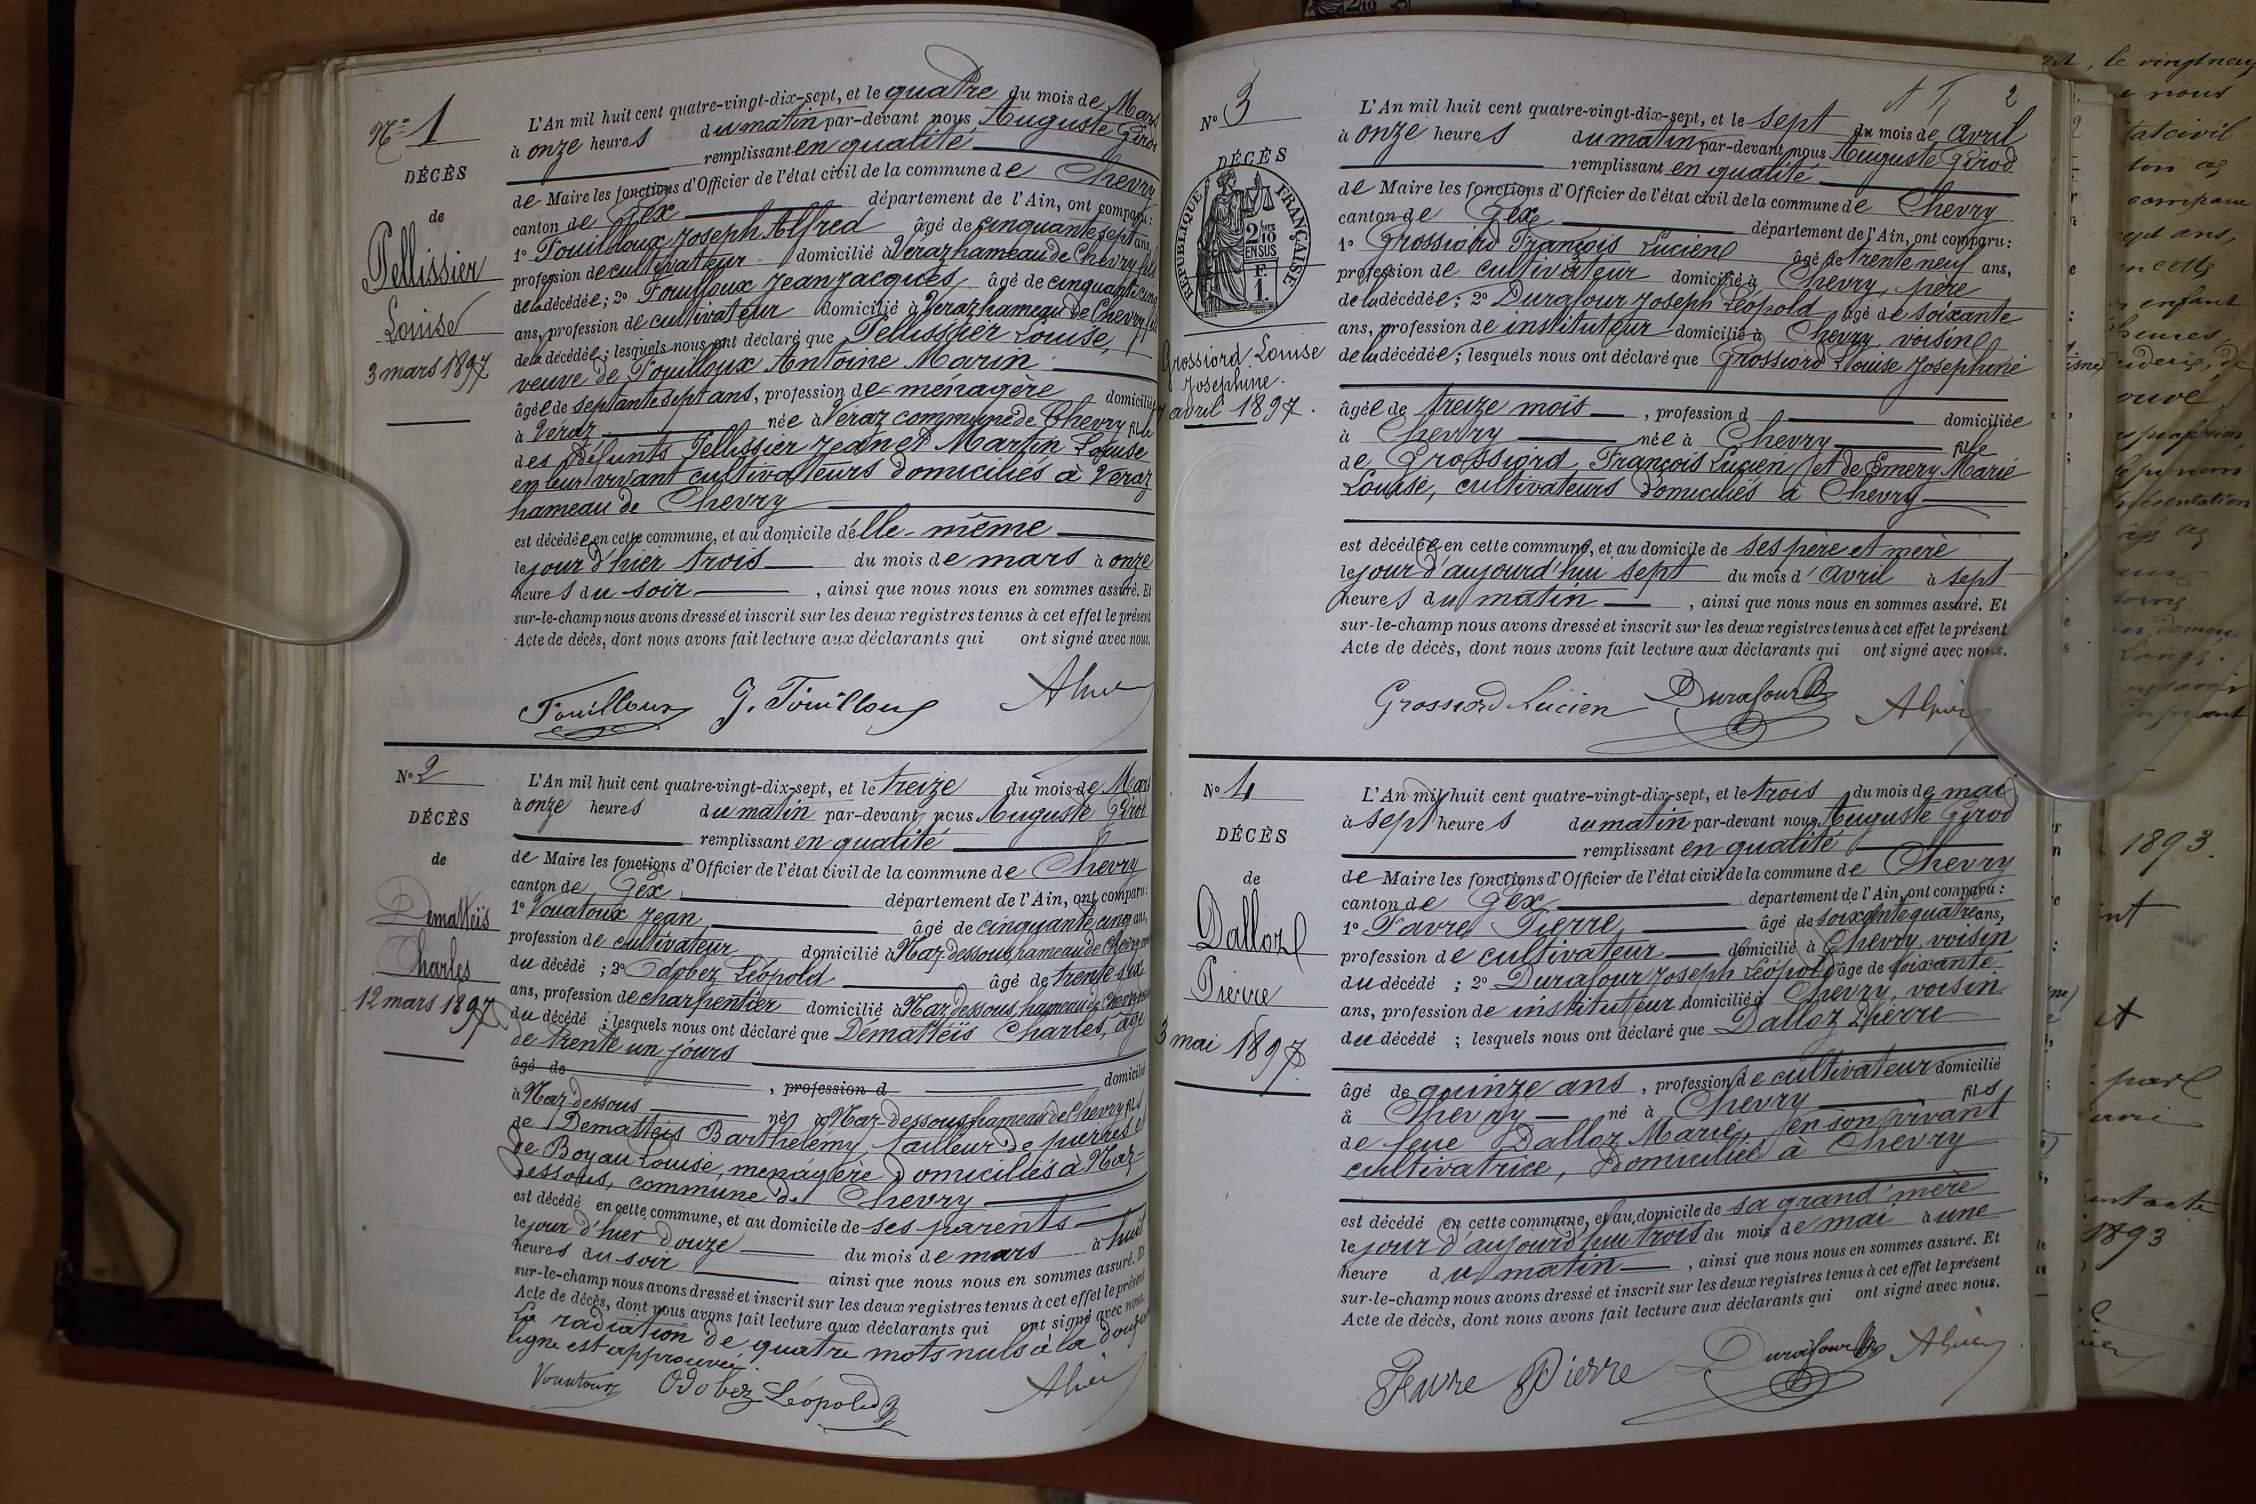 Nº 1
DÉCÈS
de
Pellissier
Louise
3 mars 1897
L'An mil huit cent quatre-vingt-dix-sept, et le quatre du mois de Mars
à onze heures du matin par-devant nous Auguste Girod
remplissant en qualité
de Maire les fonctions d'Officier de l'état civil de la commune de Chevry
canton de Gex département de l'Ain, ont comparu:
1º Fouilloux Joseph Alfred âgé de cinquante sept ans,
profession de cultivateur domicilié à Veraz hameau de Chevry fils
de la décédée; 2º Fouilloux Jean Jacques âgé de cinquante cinq
ans, profession de cultivateur domicilié à Veraz hameau de Chevry fils
de la décédée; lesquels nous ont déclaré que Pellissier Louise,
veuve de Fouilloux Antoine Marin
âgée de septante sept ans, profession de ménagère domiciliée
à Véraz née à Véraz commune de Chevry fille
des défunts Pellissier Jean et Martin Louise
en leur vivant cultivateurs domiciliés à Veraz
hameau de Chevry
est décédée en cette commune, et au domicile d'elle-même
le jour d'hier trois du mois de mars à onze
heures du soir, ainsi que nous nous en sommes assuré. Et
sur-le-champ nous avons dressé et inscrit sur les deux registres tenus à cet effet le présent
Acte de décès, dont nous avons fait lecture aux déclarants qui ont signé avec nous.
Fouilloux J. Fouilloux
Nº 2
DÉCÈS
de
Dematteïs
Charles
12 mars 1897
L'An mil huit cent quatre-vingt-dix-sept, et le treize du mois de Mars
à onze heures du matin par-devant nous Auguste Girod
remplissant en qualité
de Maire les fonctions d'Officier de l'état civil de la commune de Chevry
canton de Gex département de l'Ain, ont comparu:
1º Vouatoux Jean âgé de cinquante cinq ans,
profession de cultivateur domicilié à Naz-dessous, hameau de Chevry
du décédé; 2º Odobez Léopold âgé de trente six
ans, profession de charpentier domicilié à Naz dessous, hameau de Chevry
du décédé; lesquels nous ont déclaré que Démattéïs Charles, âgé
de trente un jours
âgé de , profession d domicilié
à Naz dessous né à Naz-dessous hameau de Chevry fils
de Dematteïs Barthélémy, tailleur de pierres et
de Boyau Louise, ménagère domiciliés à Naz-
dessous, commune de Chevry
est décédé en cette commune, et au domicile de ses parents
le jour d'hier douze du mois de mars à huit
heures du soir ainsi que nous nous en sommes assuré. Et
sur-le-champ nous avons dressé et inscrit sur les deux registres tenus à cet effet le présent
Acte de décès, dont nous avons fait lecture aux déclarants qui ont signé avec nous.
La radiation de quatre mots nuls à la
ligne est approuvée.
Vouatoux Odobez Léopold
2
Nº 3
DÉCÈS
RÉPUBLIQUE FRANÇAISE
2/10 EN SUS
F. 1
Grossiord Louise
Joséphine.
7 avril 1897.
L'An mil huit cent quatre-vingt-dix-sept, et le sept du mois de avril
à onze heures du matin par-devant nous Auguste Girod
remplissant en qualité
de Maire les fonctions d'Officier de l'état civil de la commune de Chevry
canton de Gex département de l'Ain, ont comparu:
1º Grossiord François Lucien âgé de trente neuf ans,
profession de cultivateur domicilié à Chevry, père
de la décédée; 2º Durafour Joseph Léopold âgé de soixante
ans, profession de instituteur domicilié à Chevry, voisin
de la décédée; lesquels nous ont déclaré que Grossiord Louise Joséphine
âgée de treize mois, profession d domiciliée
à Chevry née à Chevry fille
de Grossiord, François Lucien et de Emery Marie
Louise, cultivateurs domiciliés à Chevry
est décédée en cette commune, et au domicile de ses père et mère
le jour d'aujourd'hui sept du mois d'avril à sept
heures du matin, ainsi que nous nous en sommes assuré. Et
sur-le-champ nous avons dressé et inscrit sur les deux registres tenus à cet effet le présent
Acte de décès, dont nous avons fait lecture aux déclarants qui ont signé avec nous.
Grossiord Lucien Durafour
Nº 4
DÉCÈS
de
Dalloz
Pierre
3 mai 1897.
L'An mil huit cent quatre-vingt-dix-sept, et le trois du mois de mai
à sept heures du matin par-devant nous Auguste Girod
remplissant en qualité
de Maire les fonctions d'Officier de l'état civil de la commune de Chevry
canton de Gex département de l'Ain, ont comparu:
1º Favre Pierre âgé de soixante quatre ans,
profession de cultivateur domicilié à Chevry, voisin
du décédé; 2º Durafour Joseph Léopold âgé de soixante
ans, profession de instituteur domicilié à Chevry, voisin
du décédé; lesquels nous ont déclaré que Dalloz Pierre
âgé de quinze ans, profession de cultivateur domicilié
à Chevry né à Chevry fils
de feue Dalloz Marie, en son vivant
cultivatrice, domiciliée à Chevry
est décédé en cette commune, et au domicile de sa grand'mère
le jour d'aujourd'hui trois du mois de mai à une
heure du matin, ainsi que nous nous en sommes assuré. Et
sur-le-champ nous avons dressé et inscrit sur les deux registres tenus à cet effet le présent
Acte de décès, dont nous avons fait lecture aux déclarants qui ont signé avec nous.
Favre Pierre Durafour
le vingt neuf
nous
1893.
1893